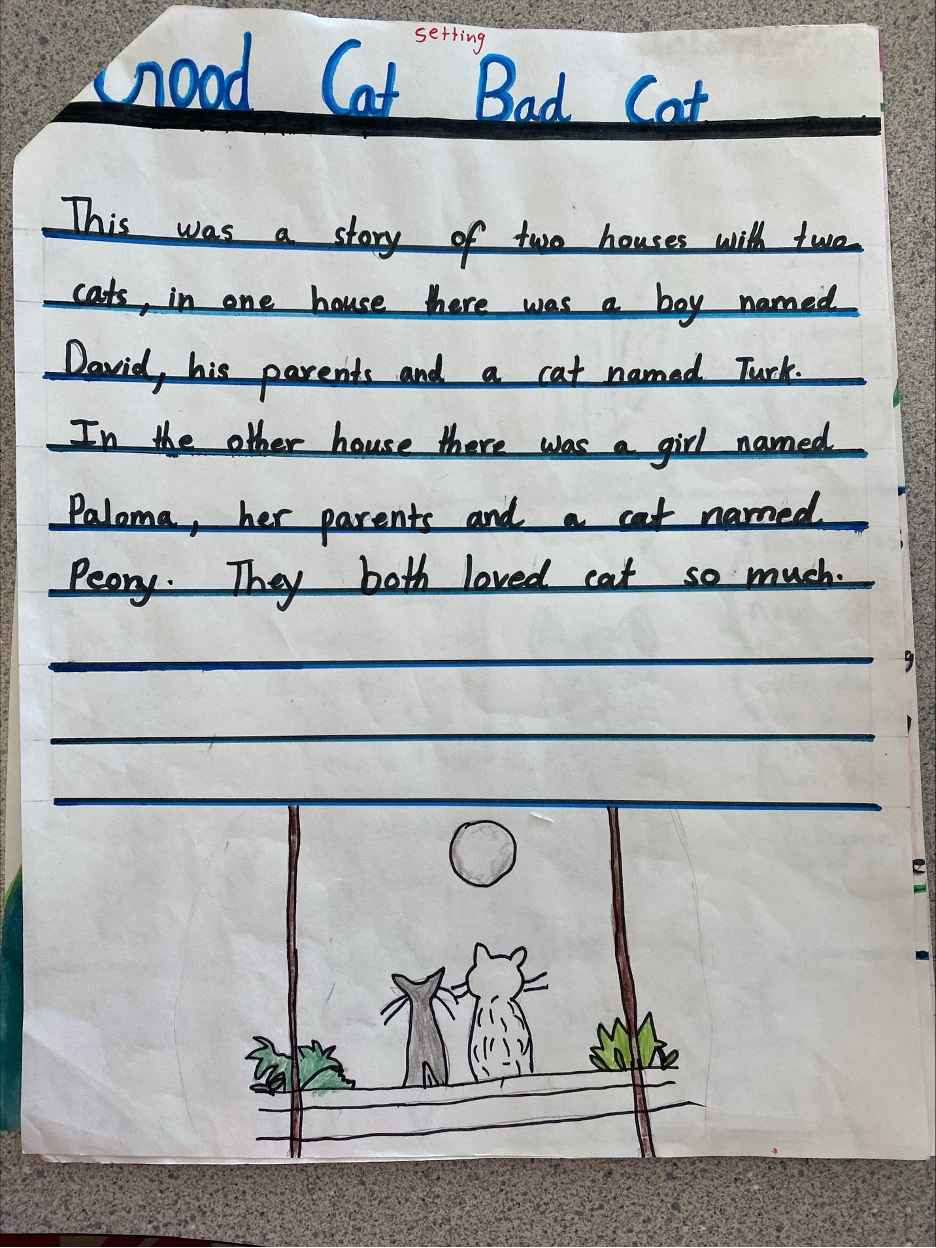 setting
Good Cat Bad Cat
This was a story of two houses with two
cats, in one house there was a boy named
David, his parents and a cat named Turk.
In the other house there was a girl named
Paloma, her parents and a cat named
Peony. They both loved cat so much.